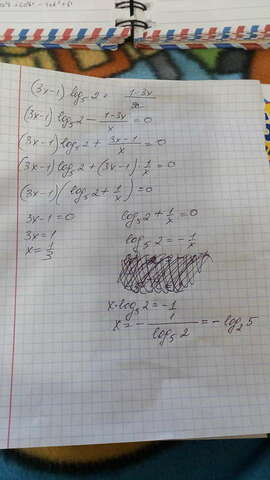 (3x-1) log₅2 = (1-3x)/x
(3x-1) log₅2 - (1-3x)/x = 0
(3x-1) log₅2 + (3x-1)/x = 0
(3x-1) log₅2 + (3x-1) · 1/x = 0
(3x-1)(log₅2 + 1/x) = 0
3x-1 = 0
3x = 1
x = 1/3
log₅2 + 1/x = 0
log₅2 = -1/x
x·log₅2 = -1
x = - 1/log₅2 = - log₂5